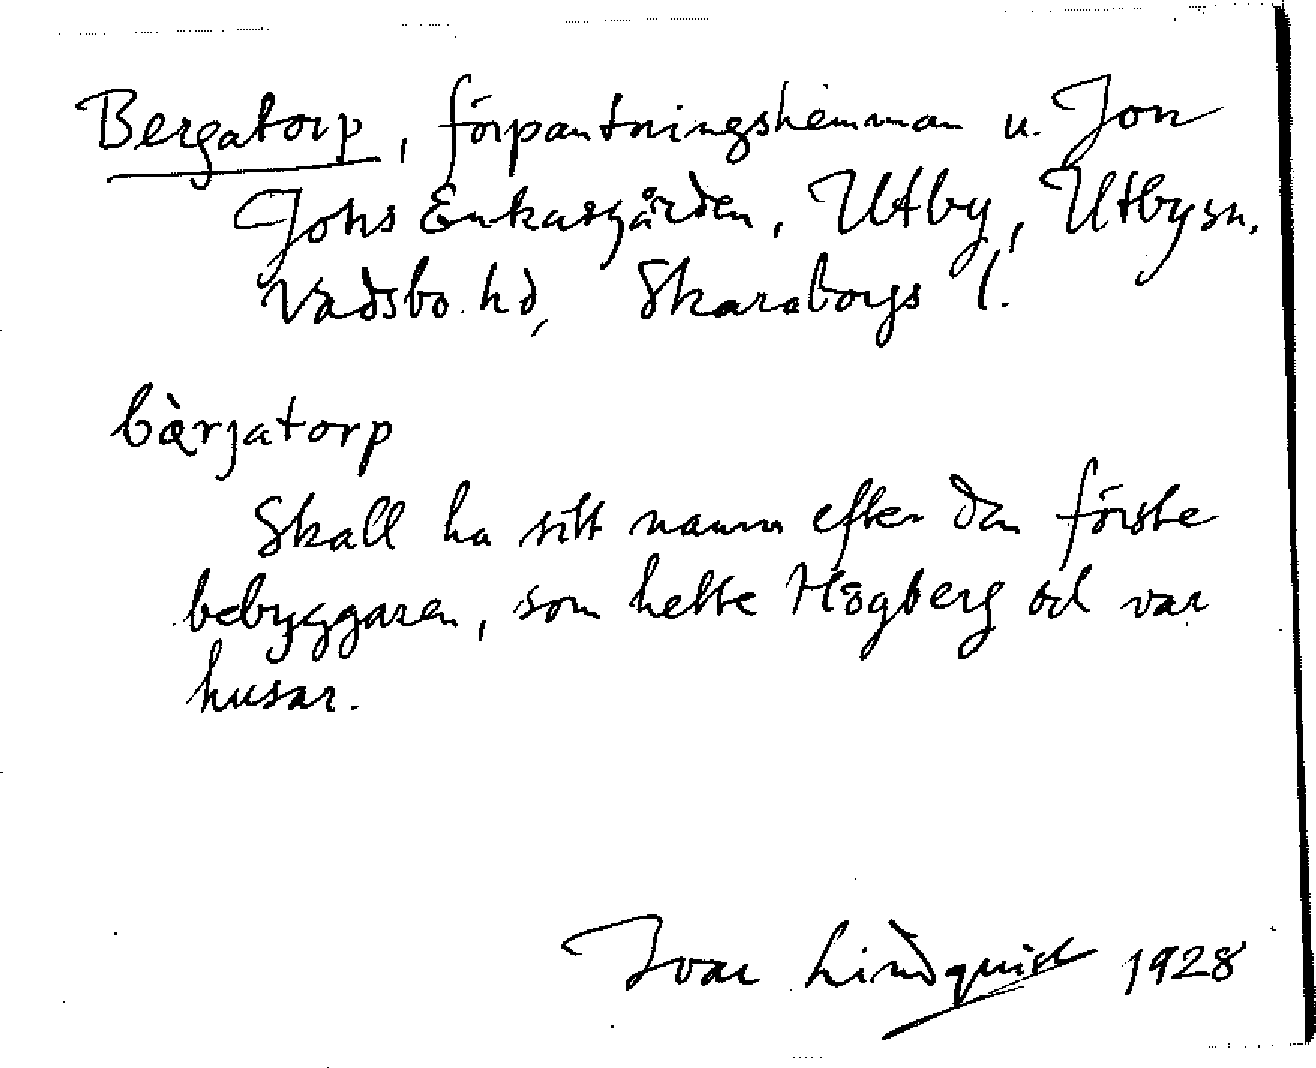 Bergatorp, förpantningshemman u. Jon
Johs Enkasgården, Utby, Utby sn,
Vadsbo hd, Skaraborgs l.
bàrjatorp
Skall ha sitt namn efter den förste
bebyggaren, som hette Högberg och var
husar.
Ivar Lindquist 1928